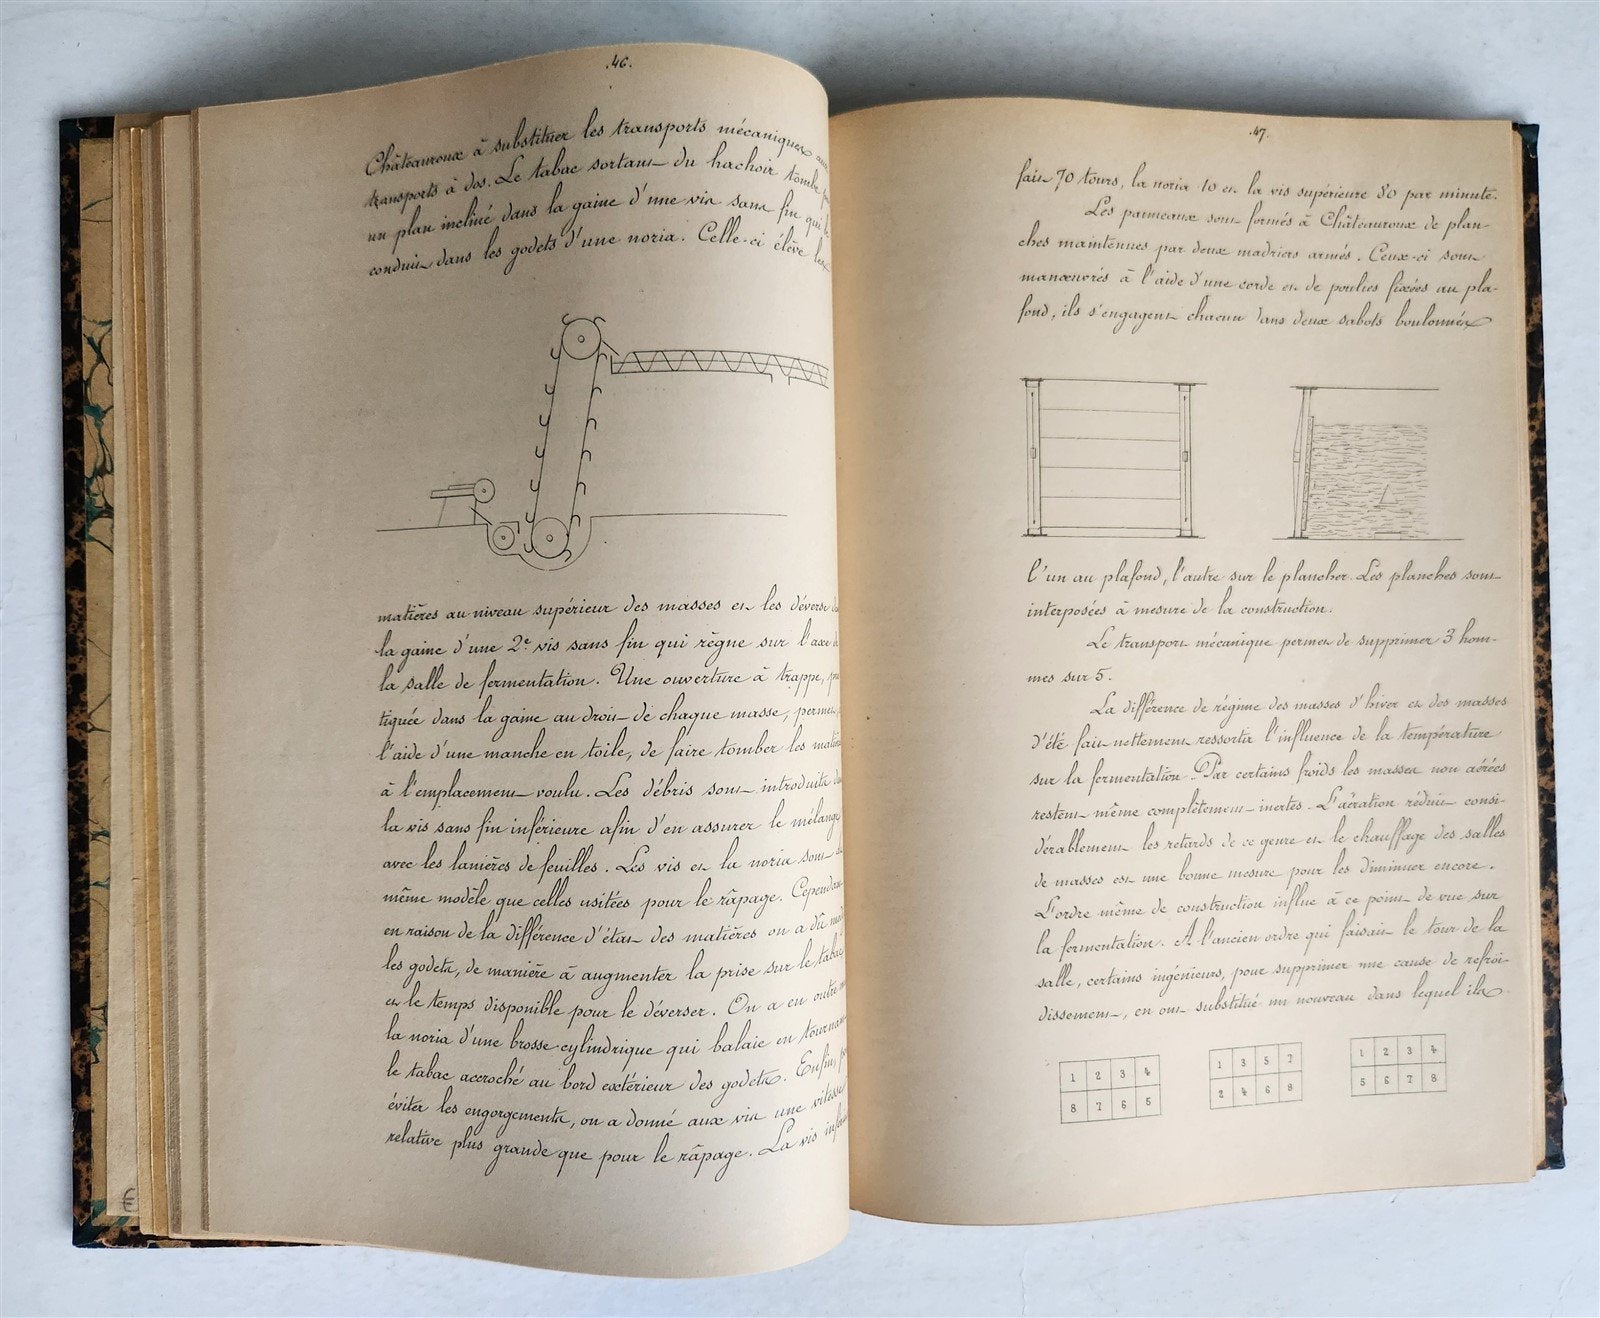 .46.
Châteauroux à substituer les transports mécaniques aux
transports à dos. Le tabac sortant du hachoir tombe par
un plan incliné dans la gaine d'une vis sans fin qui le
conduit dans les godets d'une noria. Celle-ci élève les
matières au niveau supérieur des masses et les déverse
la gaine d'une 2e vis sans fin qui règne sur l'axe de
la salle de fermentation. Une ouverture à trappe, pra
tiquée dans la gaine au droit de chaque masse, permet
l'aide d'une manche en toile, de faire tomber les matiè
à l'emplacement voulu. Les débris sont introduits
la vis sans fin inférieure afin d'en assurer le mélange
avec les lanières de feuilles. Les vis et la noria sont
même modèle que celles usitées pour le râpage. Cependant
en raison de la différence d'état des matières on a dû
les godets, de manière à augmenter la prise sur le tabac
et le temps disponible pour le déverser. On a en outre
la noria d'une brosse cylindrique qui balaie en tournant
le tabac accroché au bord extérieur des godets. Enfin, p
éviter les engorgements, on a donné aux vis une vitesse
relative plus grande que pour le râpage. La vis infé
.47.
fait 70 tours, la noria 10 et la vis supérieure 80 par minute.
Les panneaux sont formés à Châteauroux de plan-
ches maintenues par deux madriers armés. Ceux-ci sont
manœuvrés à l'aide d'une corde et de poulies fixées au pla-
fond, ils s'engagent chacun dans deux sabots boulonnés
l'un au plafond, l'autre sur le plancher. Les planches sont
interposées à mesure de la construction.
Le transport mécanique permet de supprimer 3 hom-
mes sur 5.
La différence de régime des masses d'hiver et des masses
d'été fait nettement ressortir l'influence de la température
sur la fermentation. Par certains froids les masses non aérées
restent même complètement inertes. L'aération réduit consi-
dérablement les retards de ce genre et le chauffage des salles
de masses est une bonne mesure pour les diminuer encore.
L'ordre même de construction influe à ce point de vue sur
la fermentation. A l'ancien ordre qui faisait le tour de la
salle, certains ingénieurs, pour supprimer une cause de refroi-
dissement, en ont substitué un nouveau dans lequel ils
1 2 3 4
8 7 6 5
1 3 5 7
2 4 6 8
1 2 3 4
5 6 7 8